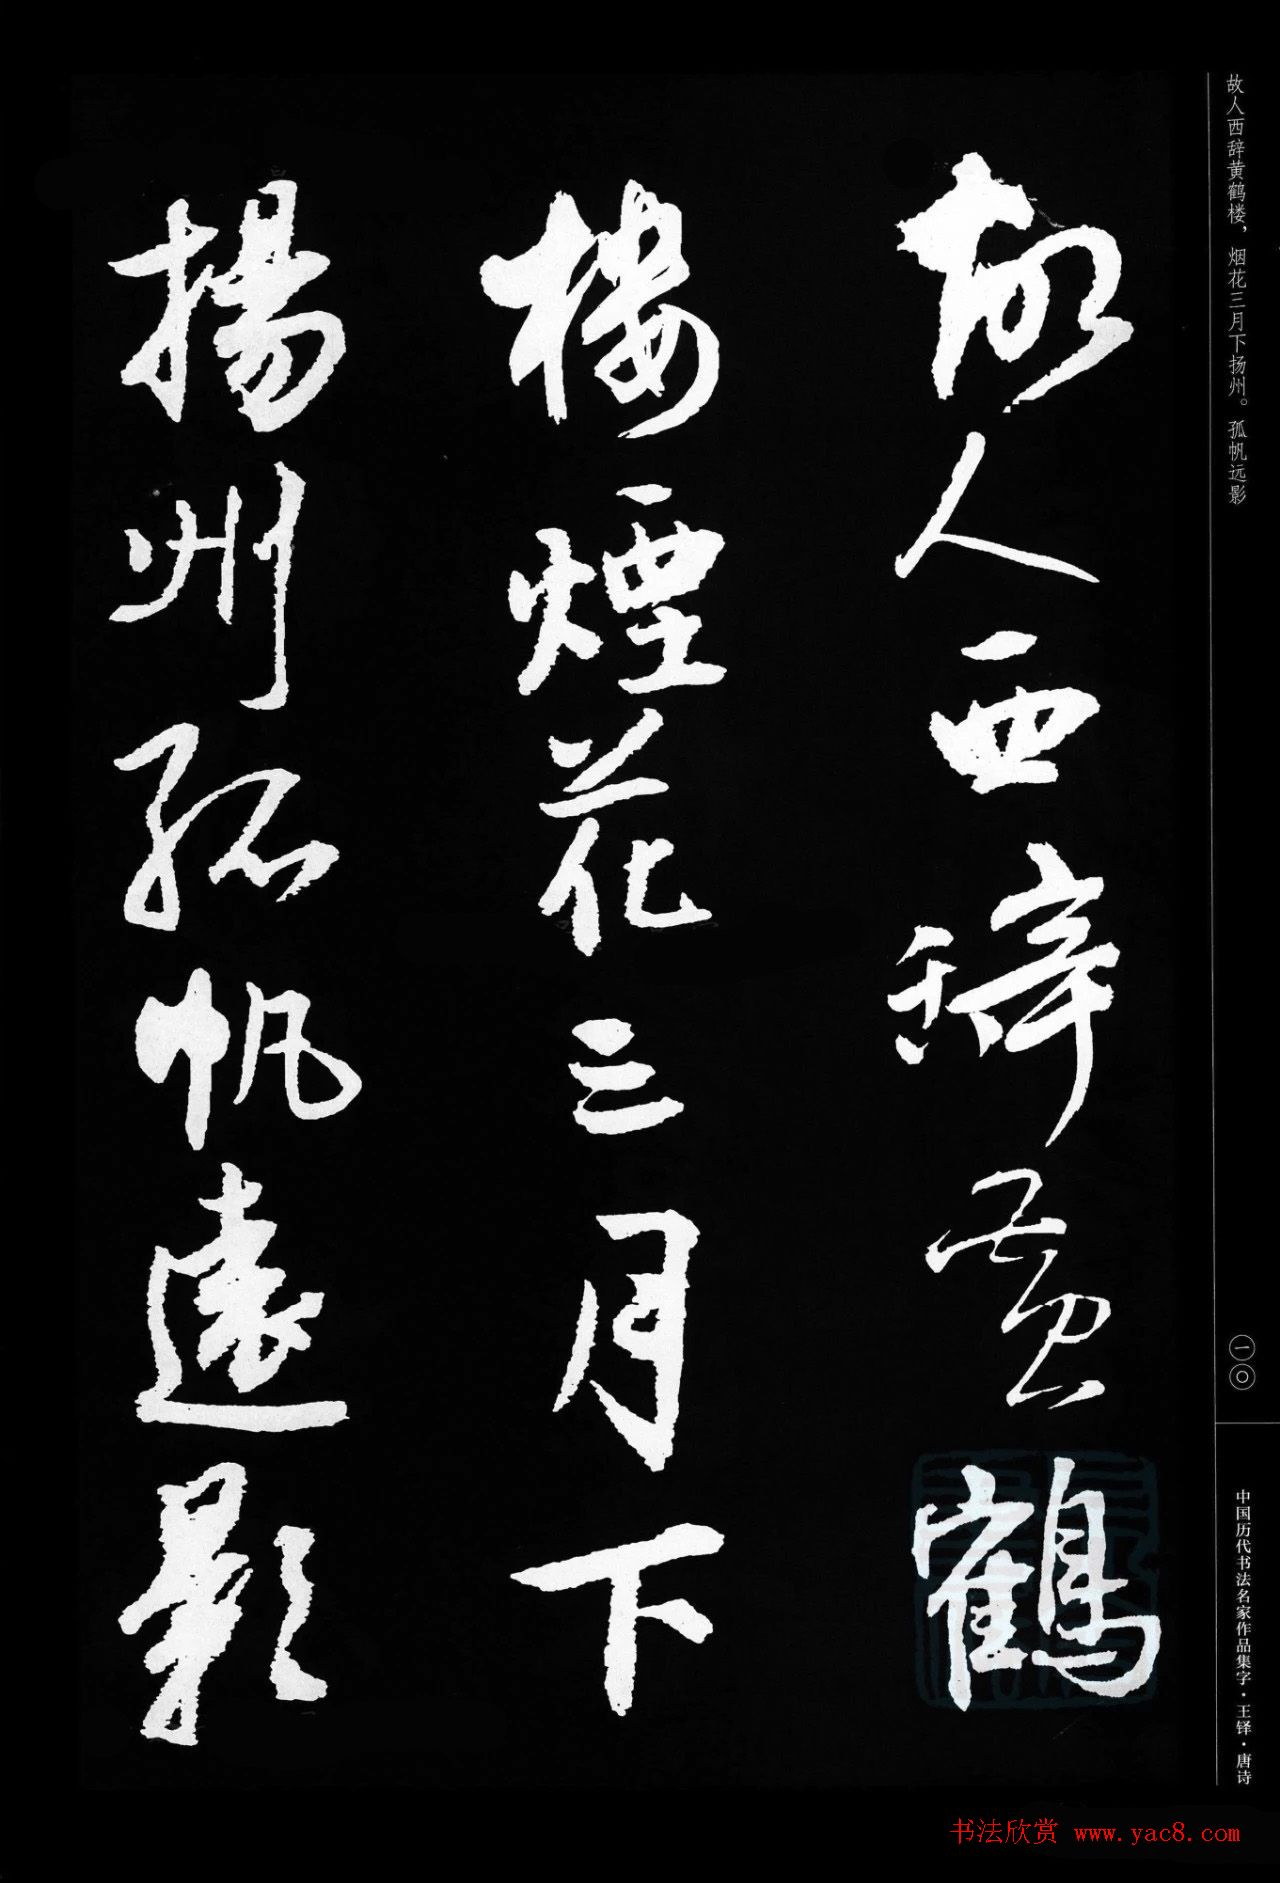 故人西辞黄鹤楼，烟花三月下扬州。孤帆远影
故人西辭黃鶴
樓煙花三月下
揚州孤帆遠影
一〇
中国历代书法名家作品集字·王铎·唐诗
书法欣赏 www.yac8.com